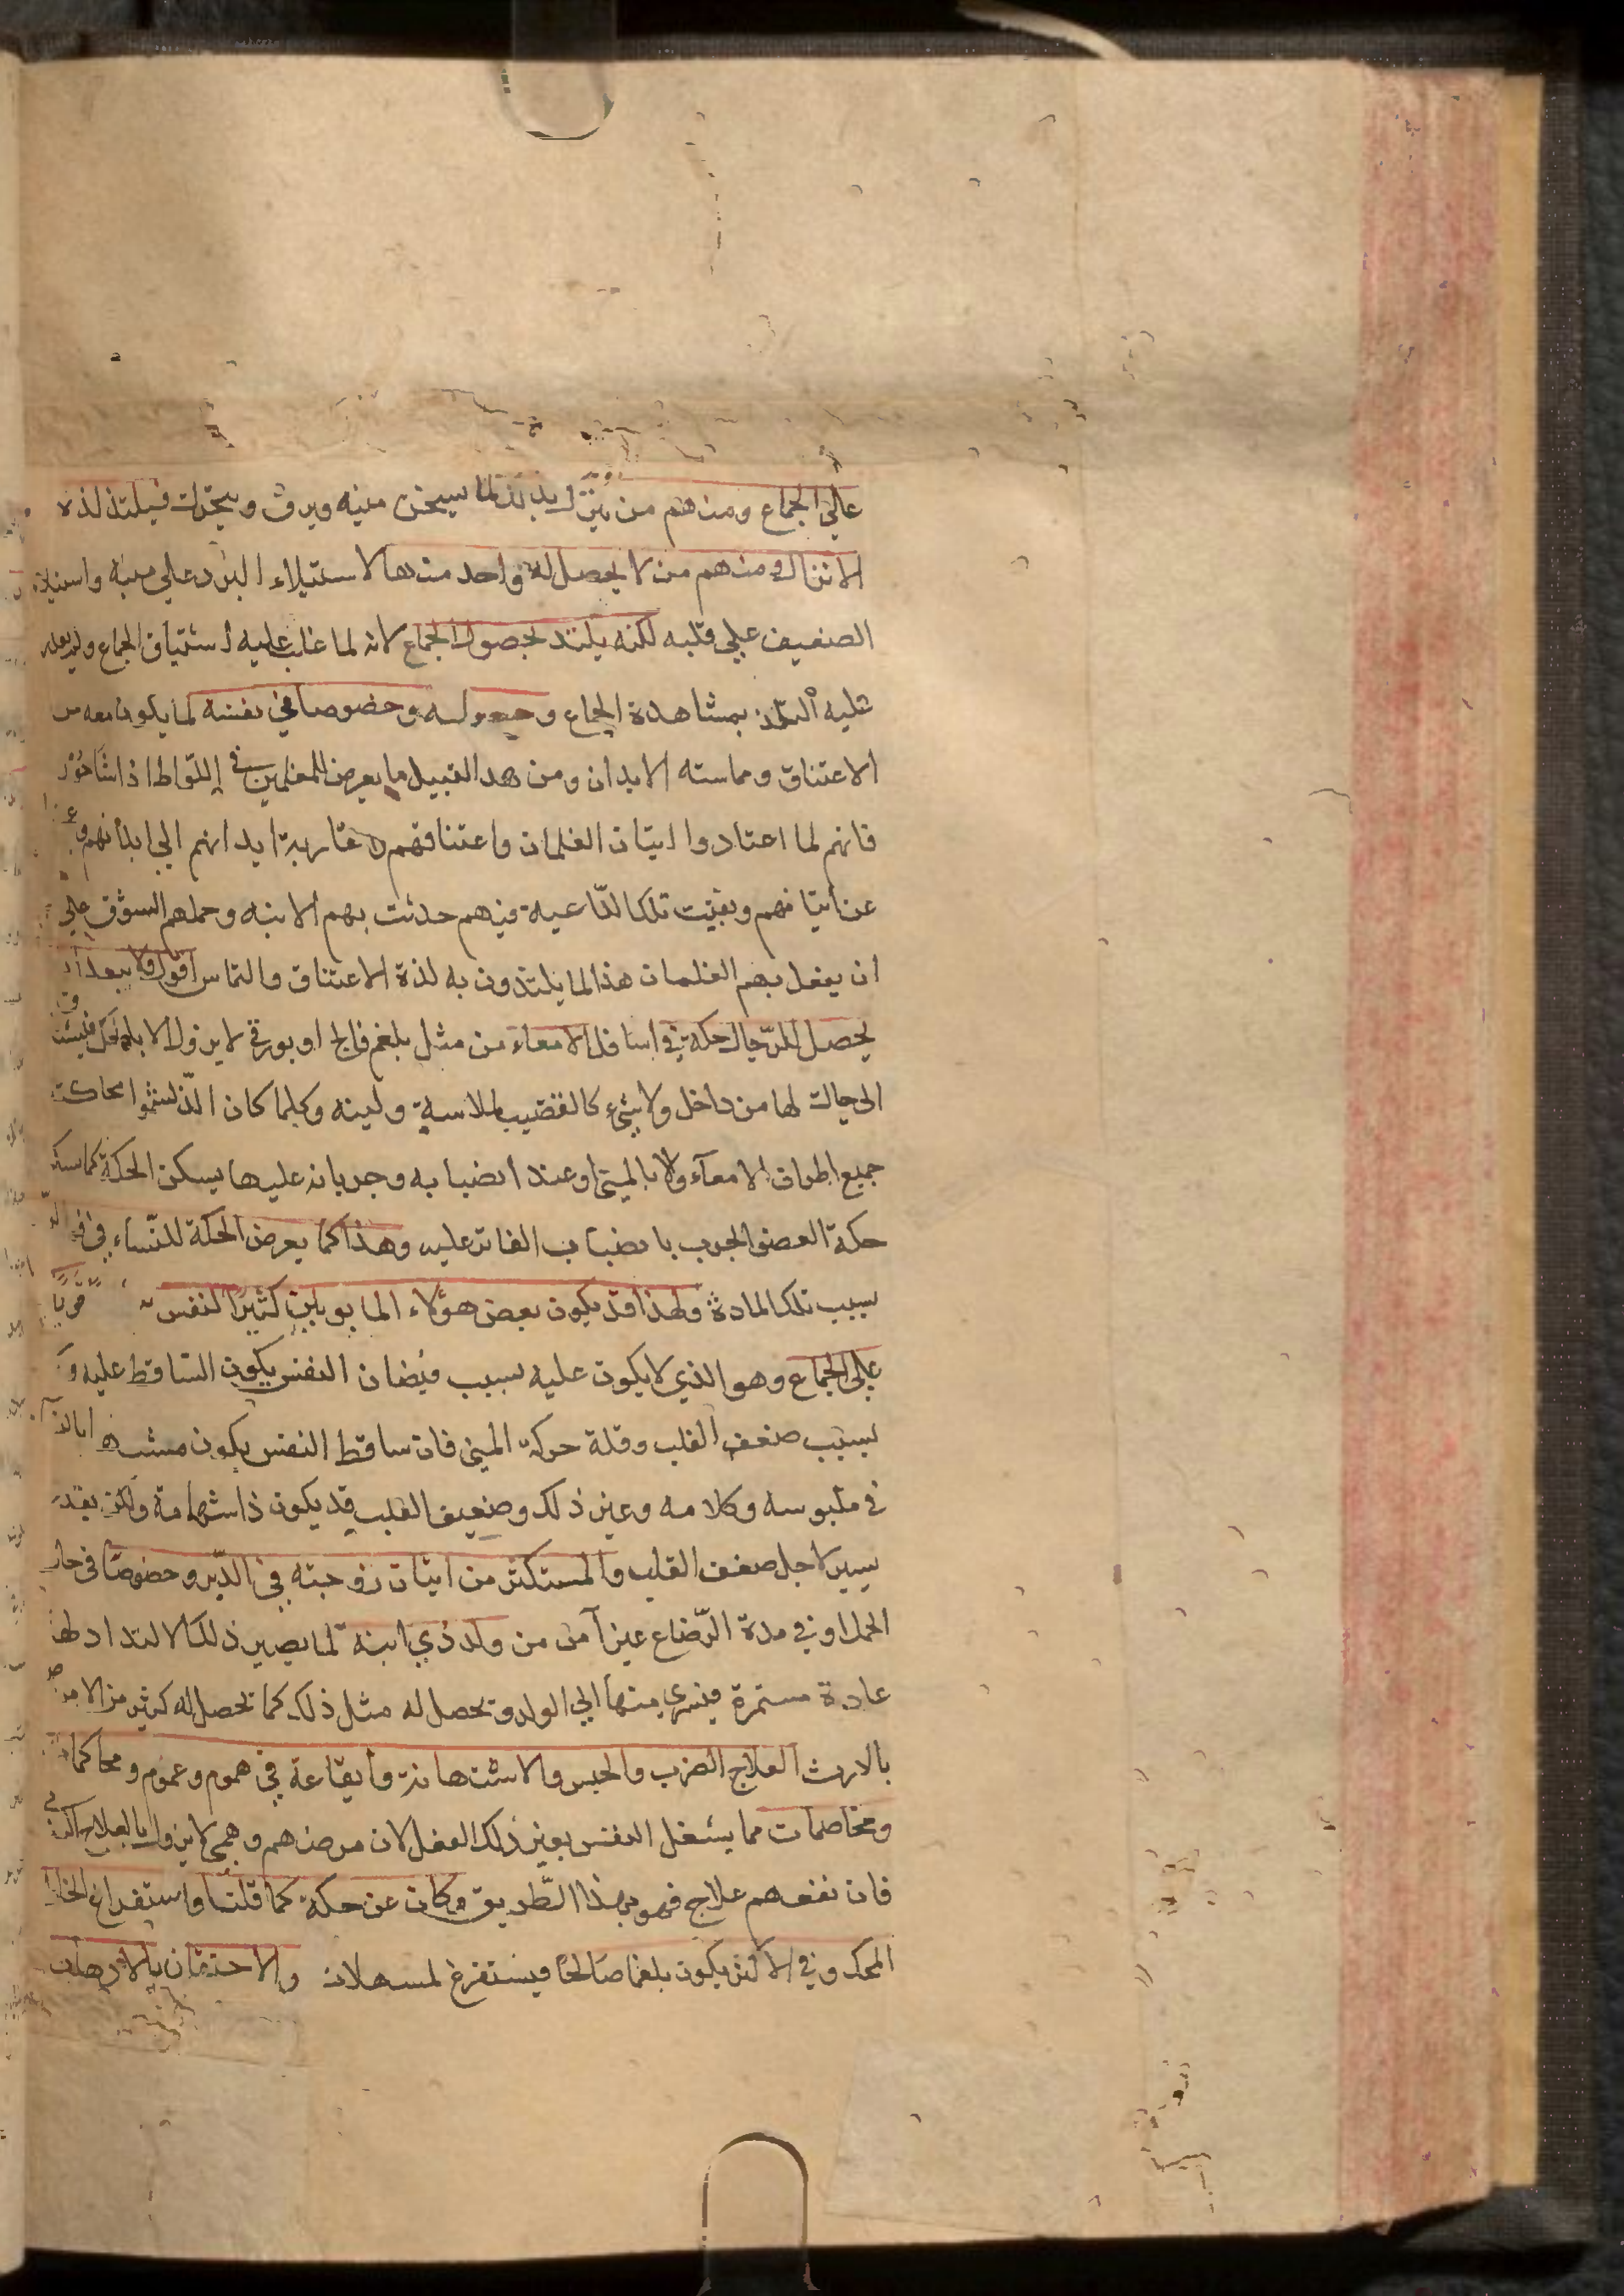 على الجماع ومنهم من ينزل بذلك لما سيخن منيه ويرق ويتحرك فيلتذ لذة
الانزال ومنهم من لا يحصل له واحد منها لاستيلاء البرد على منيه واستيلاء
الضعيف على قلبه لكنه يلتذ بحصول الجماع لانه لما غلب عليه اشتياق الجماع ولم يقدر
عليه التذ بمشاهدة الجماع وحصوله وخصوصا في نفسه لما يكون معه من
الاعتناق ومماسته الابدان ومن هذا القبيل ما يعرض للمغلمين في اللواط اذا شاخوا
فانهم لما اعتادوا اتيان الغلمان واعتناقهم مقاربة ابدانهم الى ابدانهم
عن اتيانهم وبقيت تلك الداعية فيهم حدثت بهم الابنه وحملهم الشوق على
ان يفعل بهم الغلمان هذا لما يلتذون به لذة الاعتناق والتماس اقول ولا يبعد ان
يحصل للرجال حكة في اسافل الامعاء من مثل بلغم مالح او بورقي لا يزول الا بالحك
الى حالك لها من داخل ولا شيء كالقضيب لملاسة ولينه وكلما كان
جميع اطراف الامعآء ولا بالمني او عند انصبابه وجريانه عليها يسكن الحكة كما يسكن
حكة العضو الجرب بانصباب الفاتر عليه وهذا كما يعرض الحكة للنساء في
بسبب تلك المادة ولهذا قد يكون بعض هؤلاء المابونين كثير النفس قويا
على الجماع وهو الذي لا يكون عليه بسبب فيضان النفس يكون الساقط عليه
بسبب ضعف القلب وقلة حركة المني فان ساقط النفس يكون
في ملبوسه وكلامه وغير ذلك وضعيف القلب قد يكون ذا شهامة ولكن يقدر
يسير لاجل ضعف القلب والمستكثر من اتيان زوجته في الدبر وخصوصا في حال
الحمل او في مدة الرضاع غير آمن من ولد ذي ابنه لما يصير ذلك الالتذاذ لها
عادة مستمرة فيسري منها الى الولد وتحصل له مثل ذلك كما تحصل له كثير من الامراض
بالارث العلاج الضرب والحبس والاستهانة وايقاعه في هموم وغموم ومحاكمات
ومخاصمات مما يشغل النفس بغير ذلك الفعل لان مرضهم وهمي لا يزول بالعلاج
فان نفعهم علاج فهو بهذا الطريق وكان عن حكة كما قلنا واستفراغ الخلط
المحك وفي الاكثر يكون بلغما صالحا فيستفرغ لمسهلات والاحتقان بالادهان